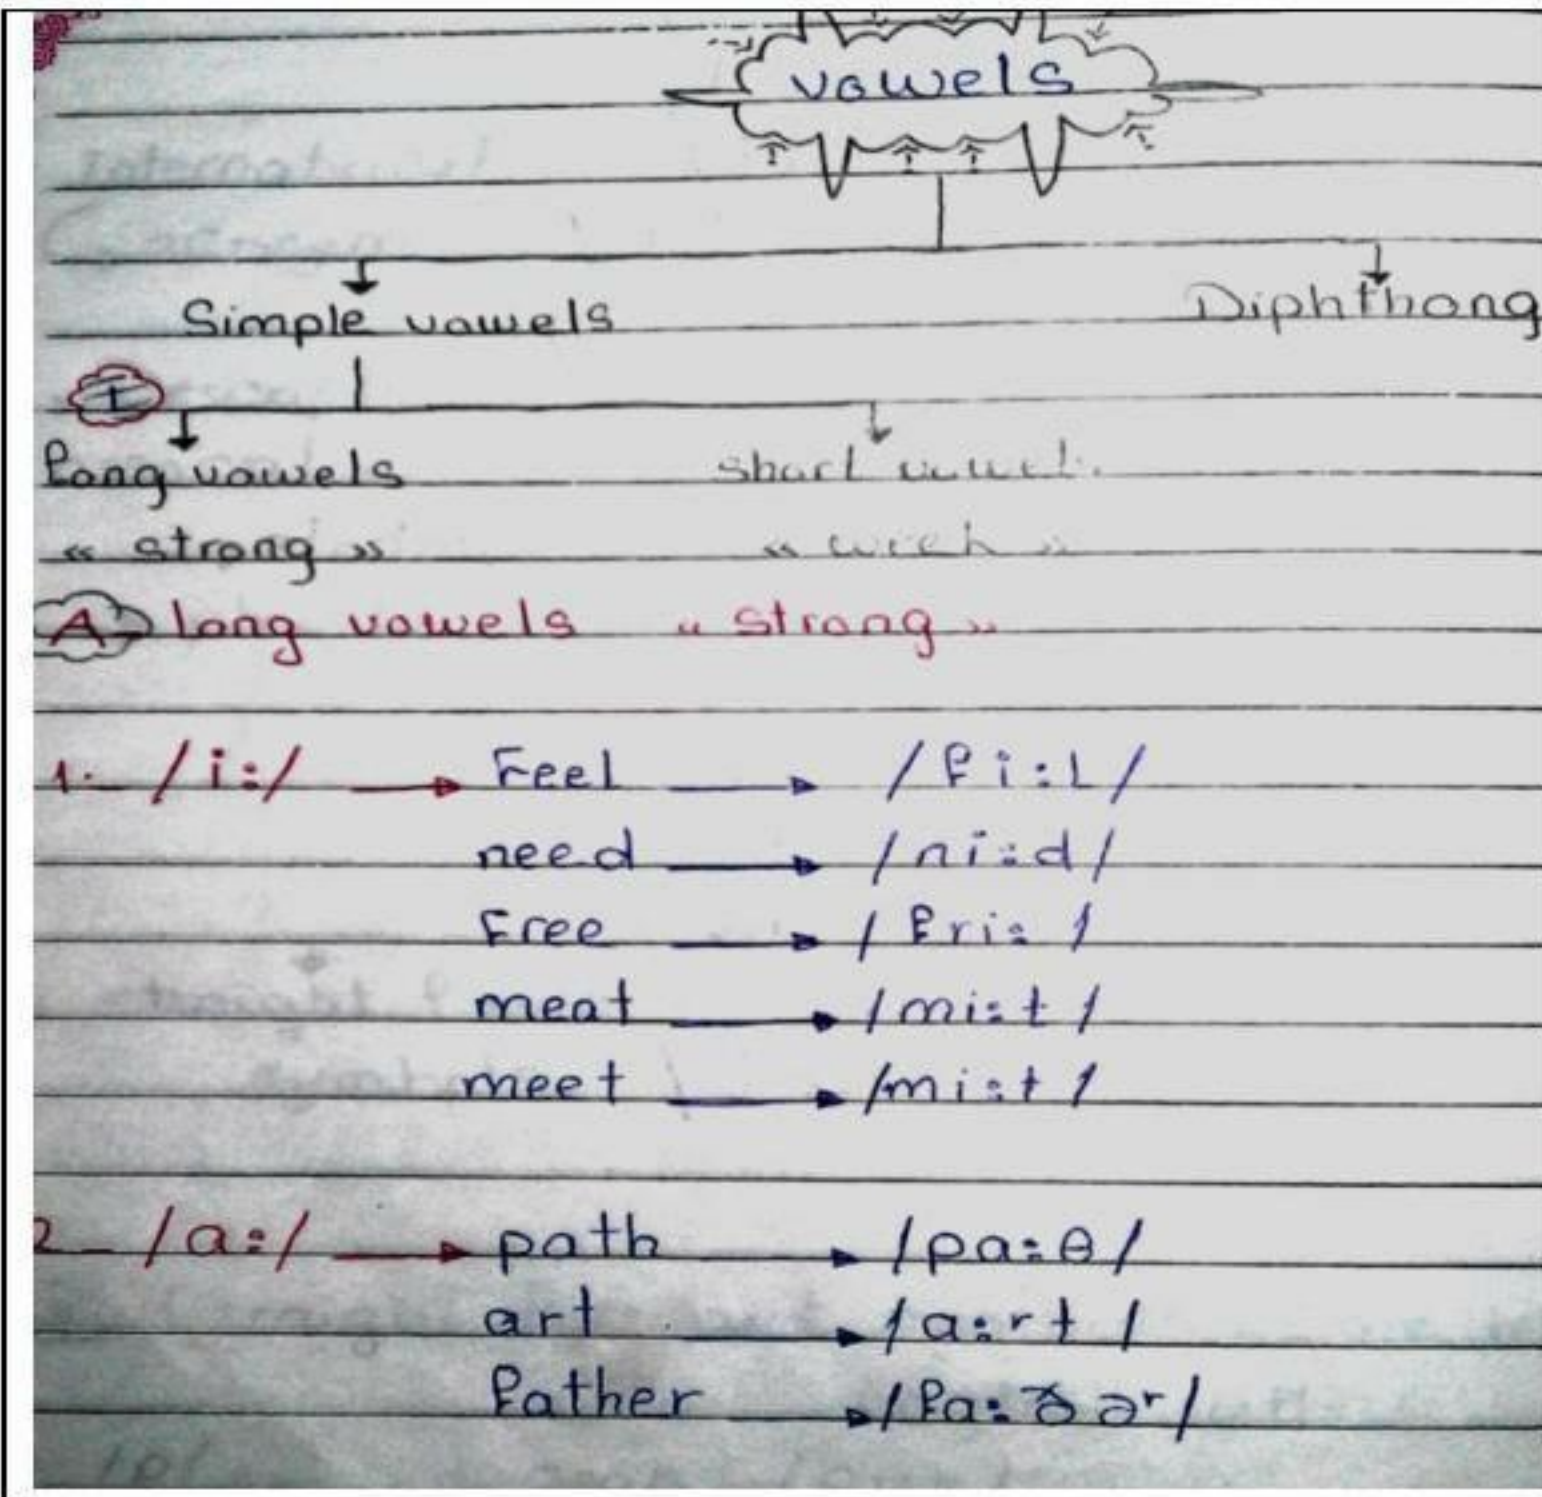 vowels
Simple vowels Diphthong
I
long vowels short vowel.
« strong » « week »
A- long vowels « strong »
1- /i:/ → Feel → /fi:l/
need → /ni:d/
Free → /fri: /
meat → /mi:t /
meet → /mi:t /
2- /a:/ → path → /pa:θ/
art → /a:rt /
father → /fa:ðəʳ/